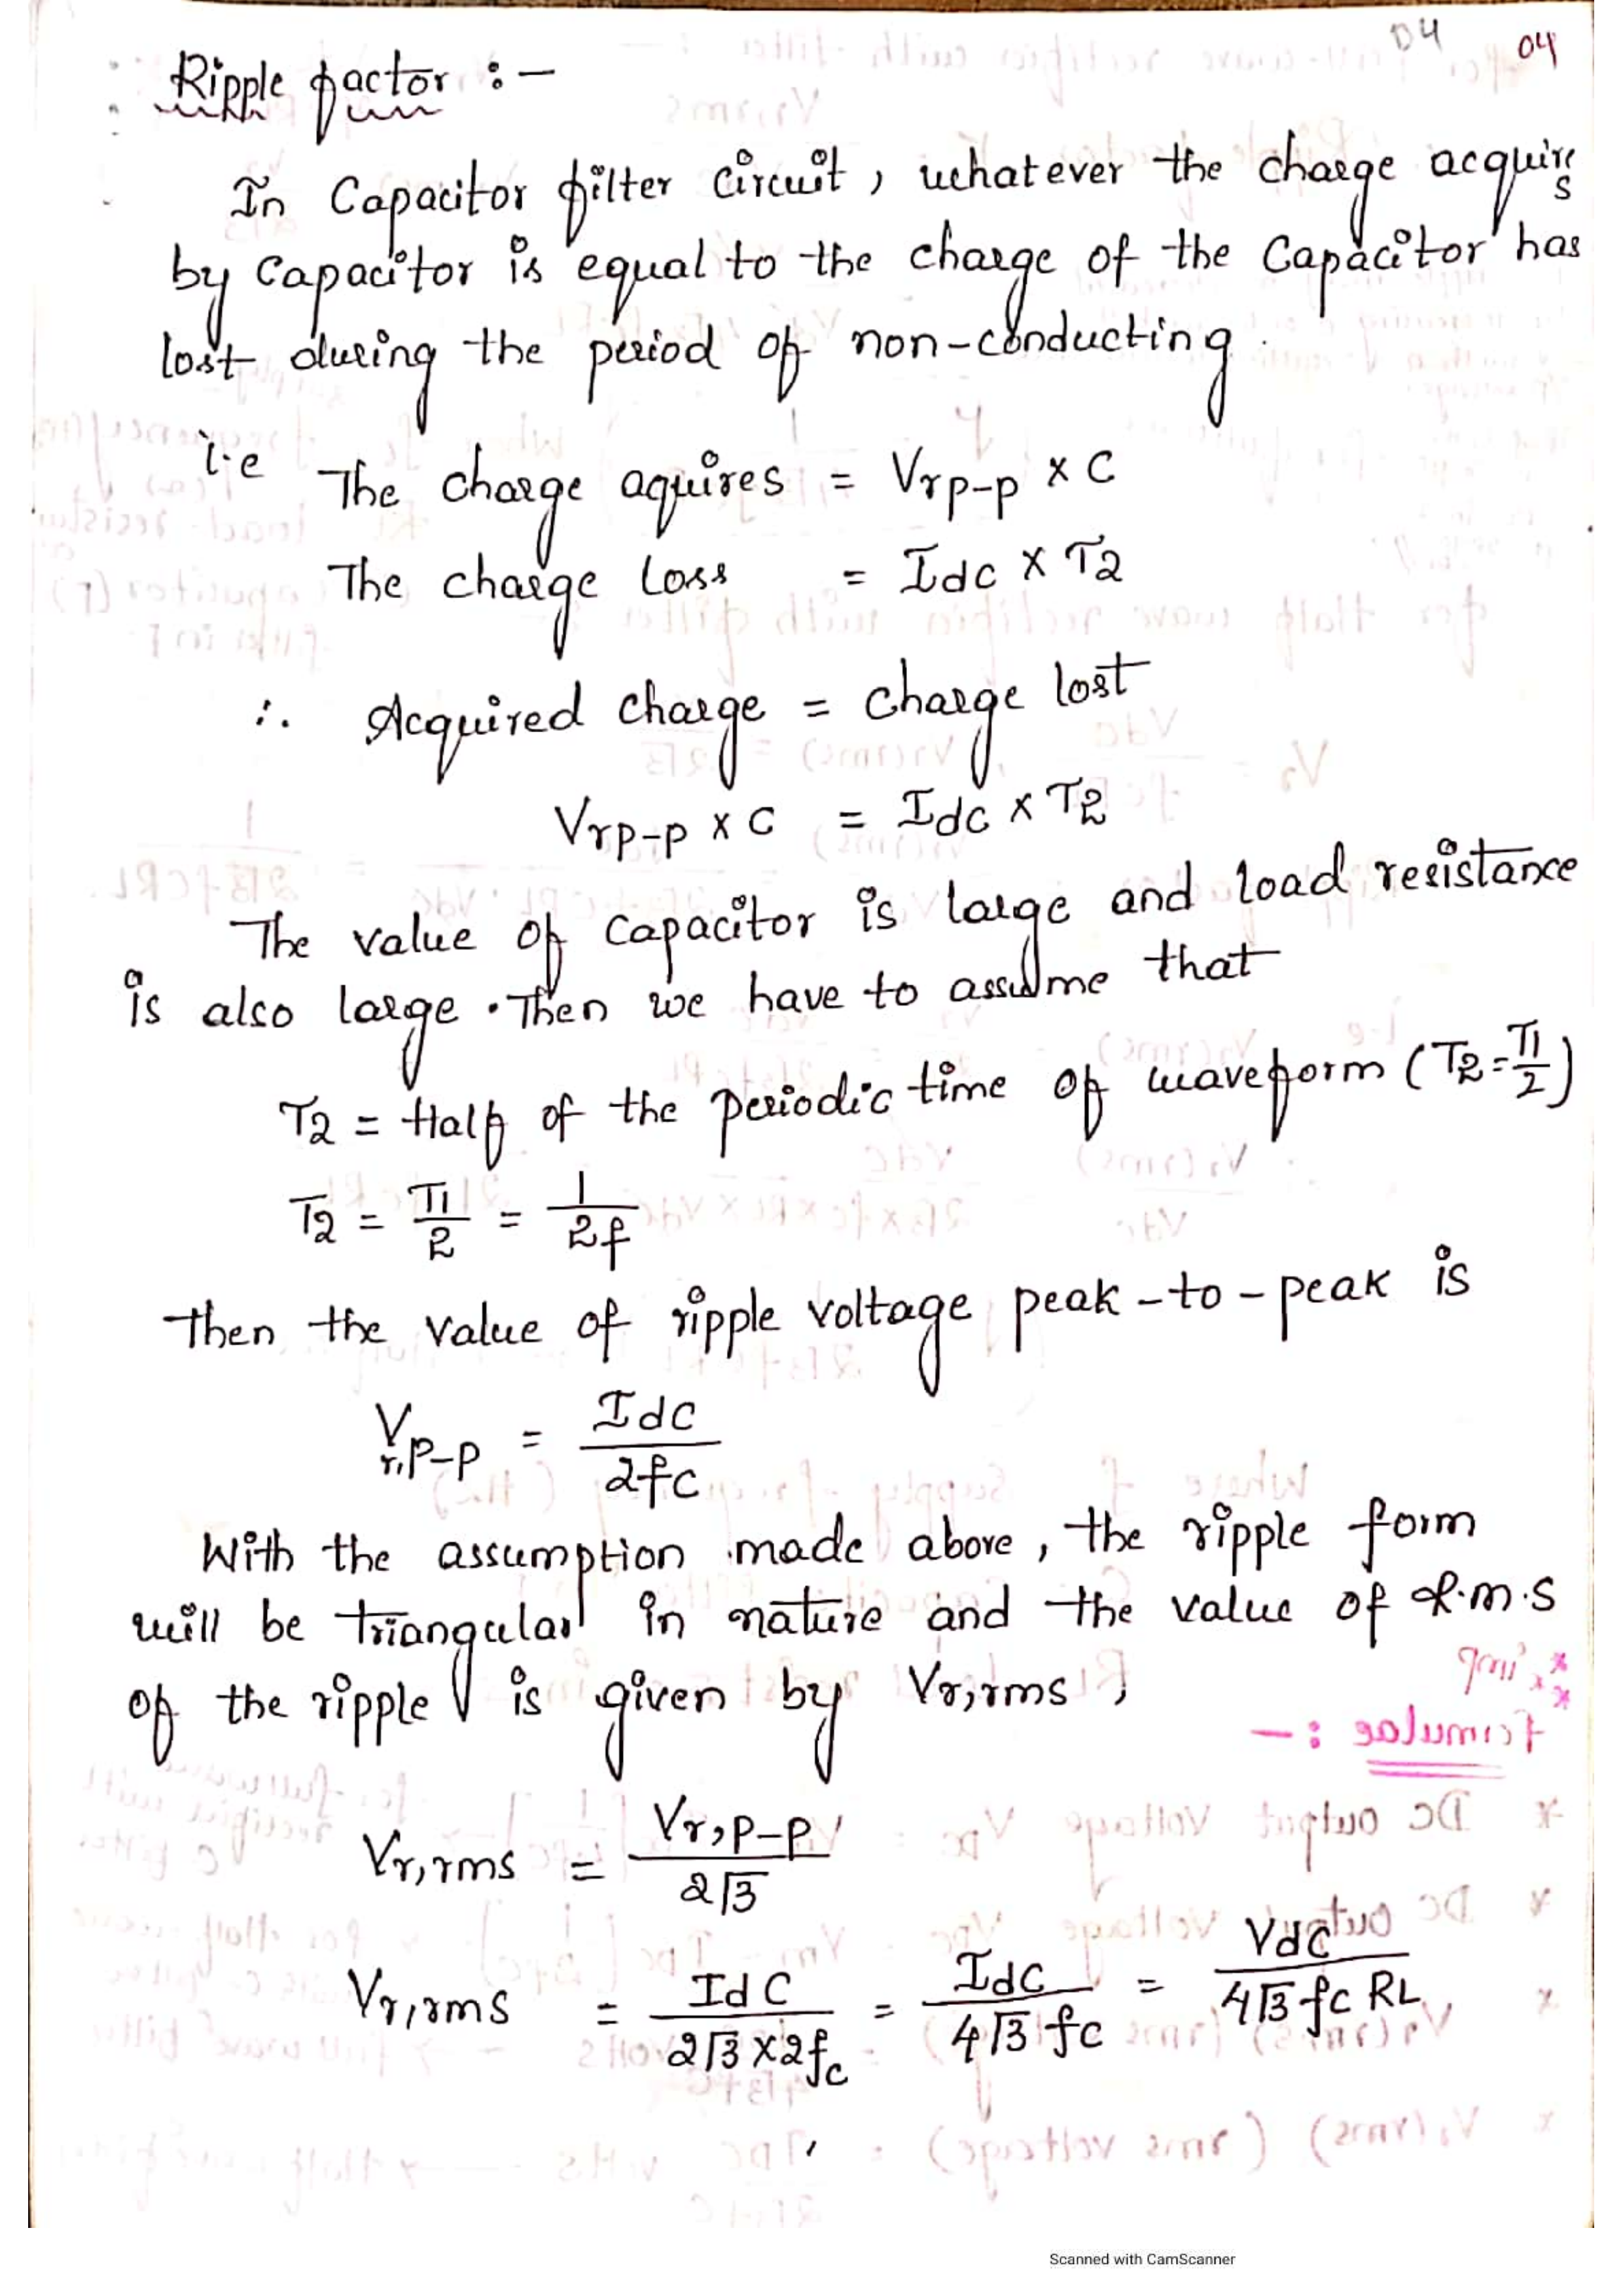 04 04
Ripple factor :-
In Capacitor filter circuit, whatever the charge acquires
by capacitor is equal to the charge of the capacitor has
lost during the period of non-conducting.
i.e The charge aquires = Vrp-p × C
The charge loss = Idc × T2
∴ Acquired charge = charge lost
Vrp-p × C = Idc × T2
The value of capacitor is large and load resistance
is also large. Then we have to assume that
T2 = Half of the periodic time of waveform (T2 = T1/2)
T2 = T1/2 = 1/2f
Then the value of ripple voltage peak-to-peak is
Vr,p-p = Idc/2fC
With the assumption made above, the ripple form
will be triangular in nature and the value of r.m.s
of the ripple is given by Vr,rms,
Vr,rms = Vr,p-p/2√3
Vr,rms = Idc/2√3×2fc = Idc/4√3 fc = Vdc/4√3 fc RL
Scanned with CamScanner